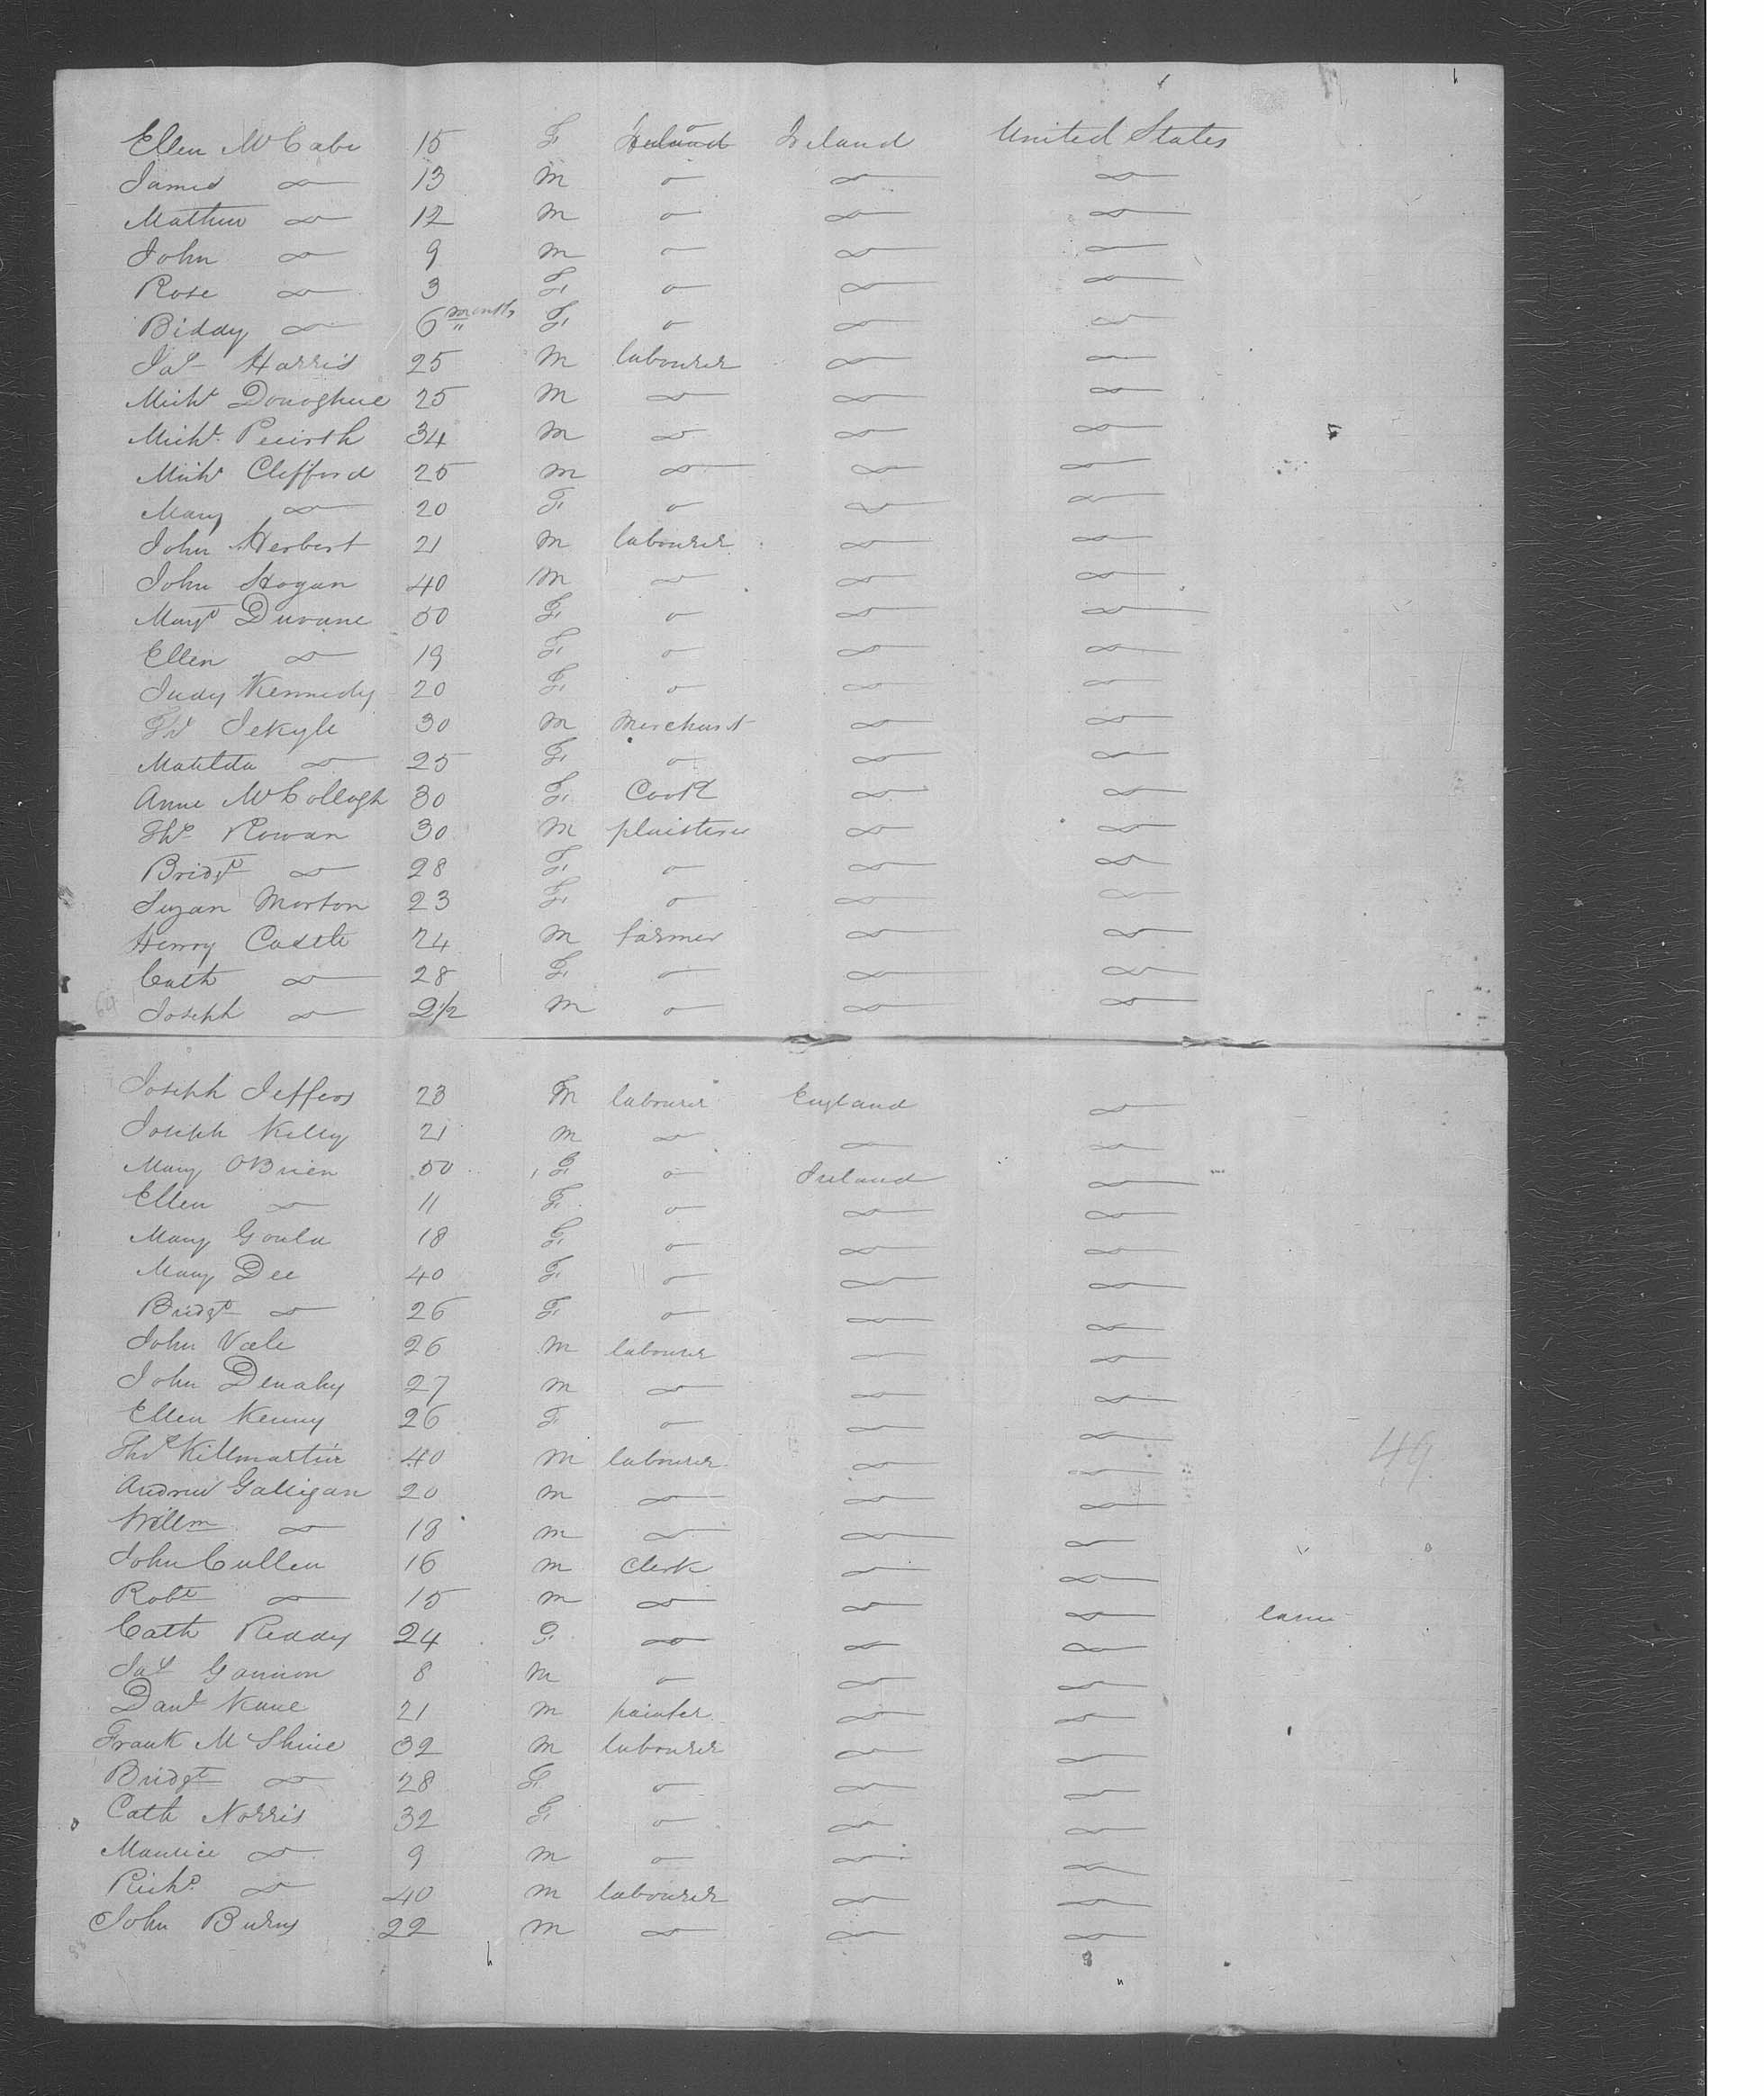 Ellen McCabe 15 F Ireland Ireland United States
James do 13 M o do do
Mathew do 12 M o do do
John do 9 M o do do
Rose do 3 F o do do
Biddy do 6 months F o do do
Jas Harris 25 M labourer do do
Michl Donoghue 25 M do do do
Michl 34 M do do do
Michl Clifford 25 M do do do
Mary do 20 F o do do
John Herbert 21 M labourer do do
John Hogan 40 M do do do
Margt Duvane 50 F o do do
Ellen do 19 F o do do
Judy Kennedy 20 F o do do
Ths Jekyle 30 M Merchant do do
Matilda do 25 F o do do
Anne McCollogh 30 F Cook do do
Ths Rowan 30 M plaisterer do do
Bridgt do 28 F o do do
Suzan Morton 23 F o do do
Henry Castle 24 M farmer do do
Cath do 28 F o do do
Joseph do 2 1/2 M o do do
64
Joseph Jeffers 23 M labourer England do
Joseph Kelly 21 M do do do
Mary OBrien 50 F o Ireland do
Ellen do 11 F o do do
Mary Gould 18 F o do do
Mary Dee 40 F o do do
Bridgt do 26 F o do do
John Vale 26 M labourer do do
John Denahy 27 M do do do
Ellen Kenny 26 F o do do
Thos Killmartin 40 M labourer do do
49
Andrew Galligan 20 M do do do
Willm do 18 M do do do
John Cullen 16 M Clerk do do
Robt do 15 M do do do
Cath Reddy 24 F do do do
Jas Gannon 8 M o do do
Danl Kane 21 M painter do do
Frank McShine 32 M labourer do do
Bridgt do 28 F o do do
Cath Norris 32 F o do do
Maurice do 9 M o do do
Richd do 40 M labourer do do
John Burns 22 M do do do